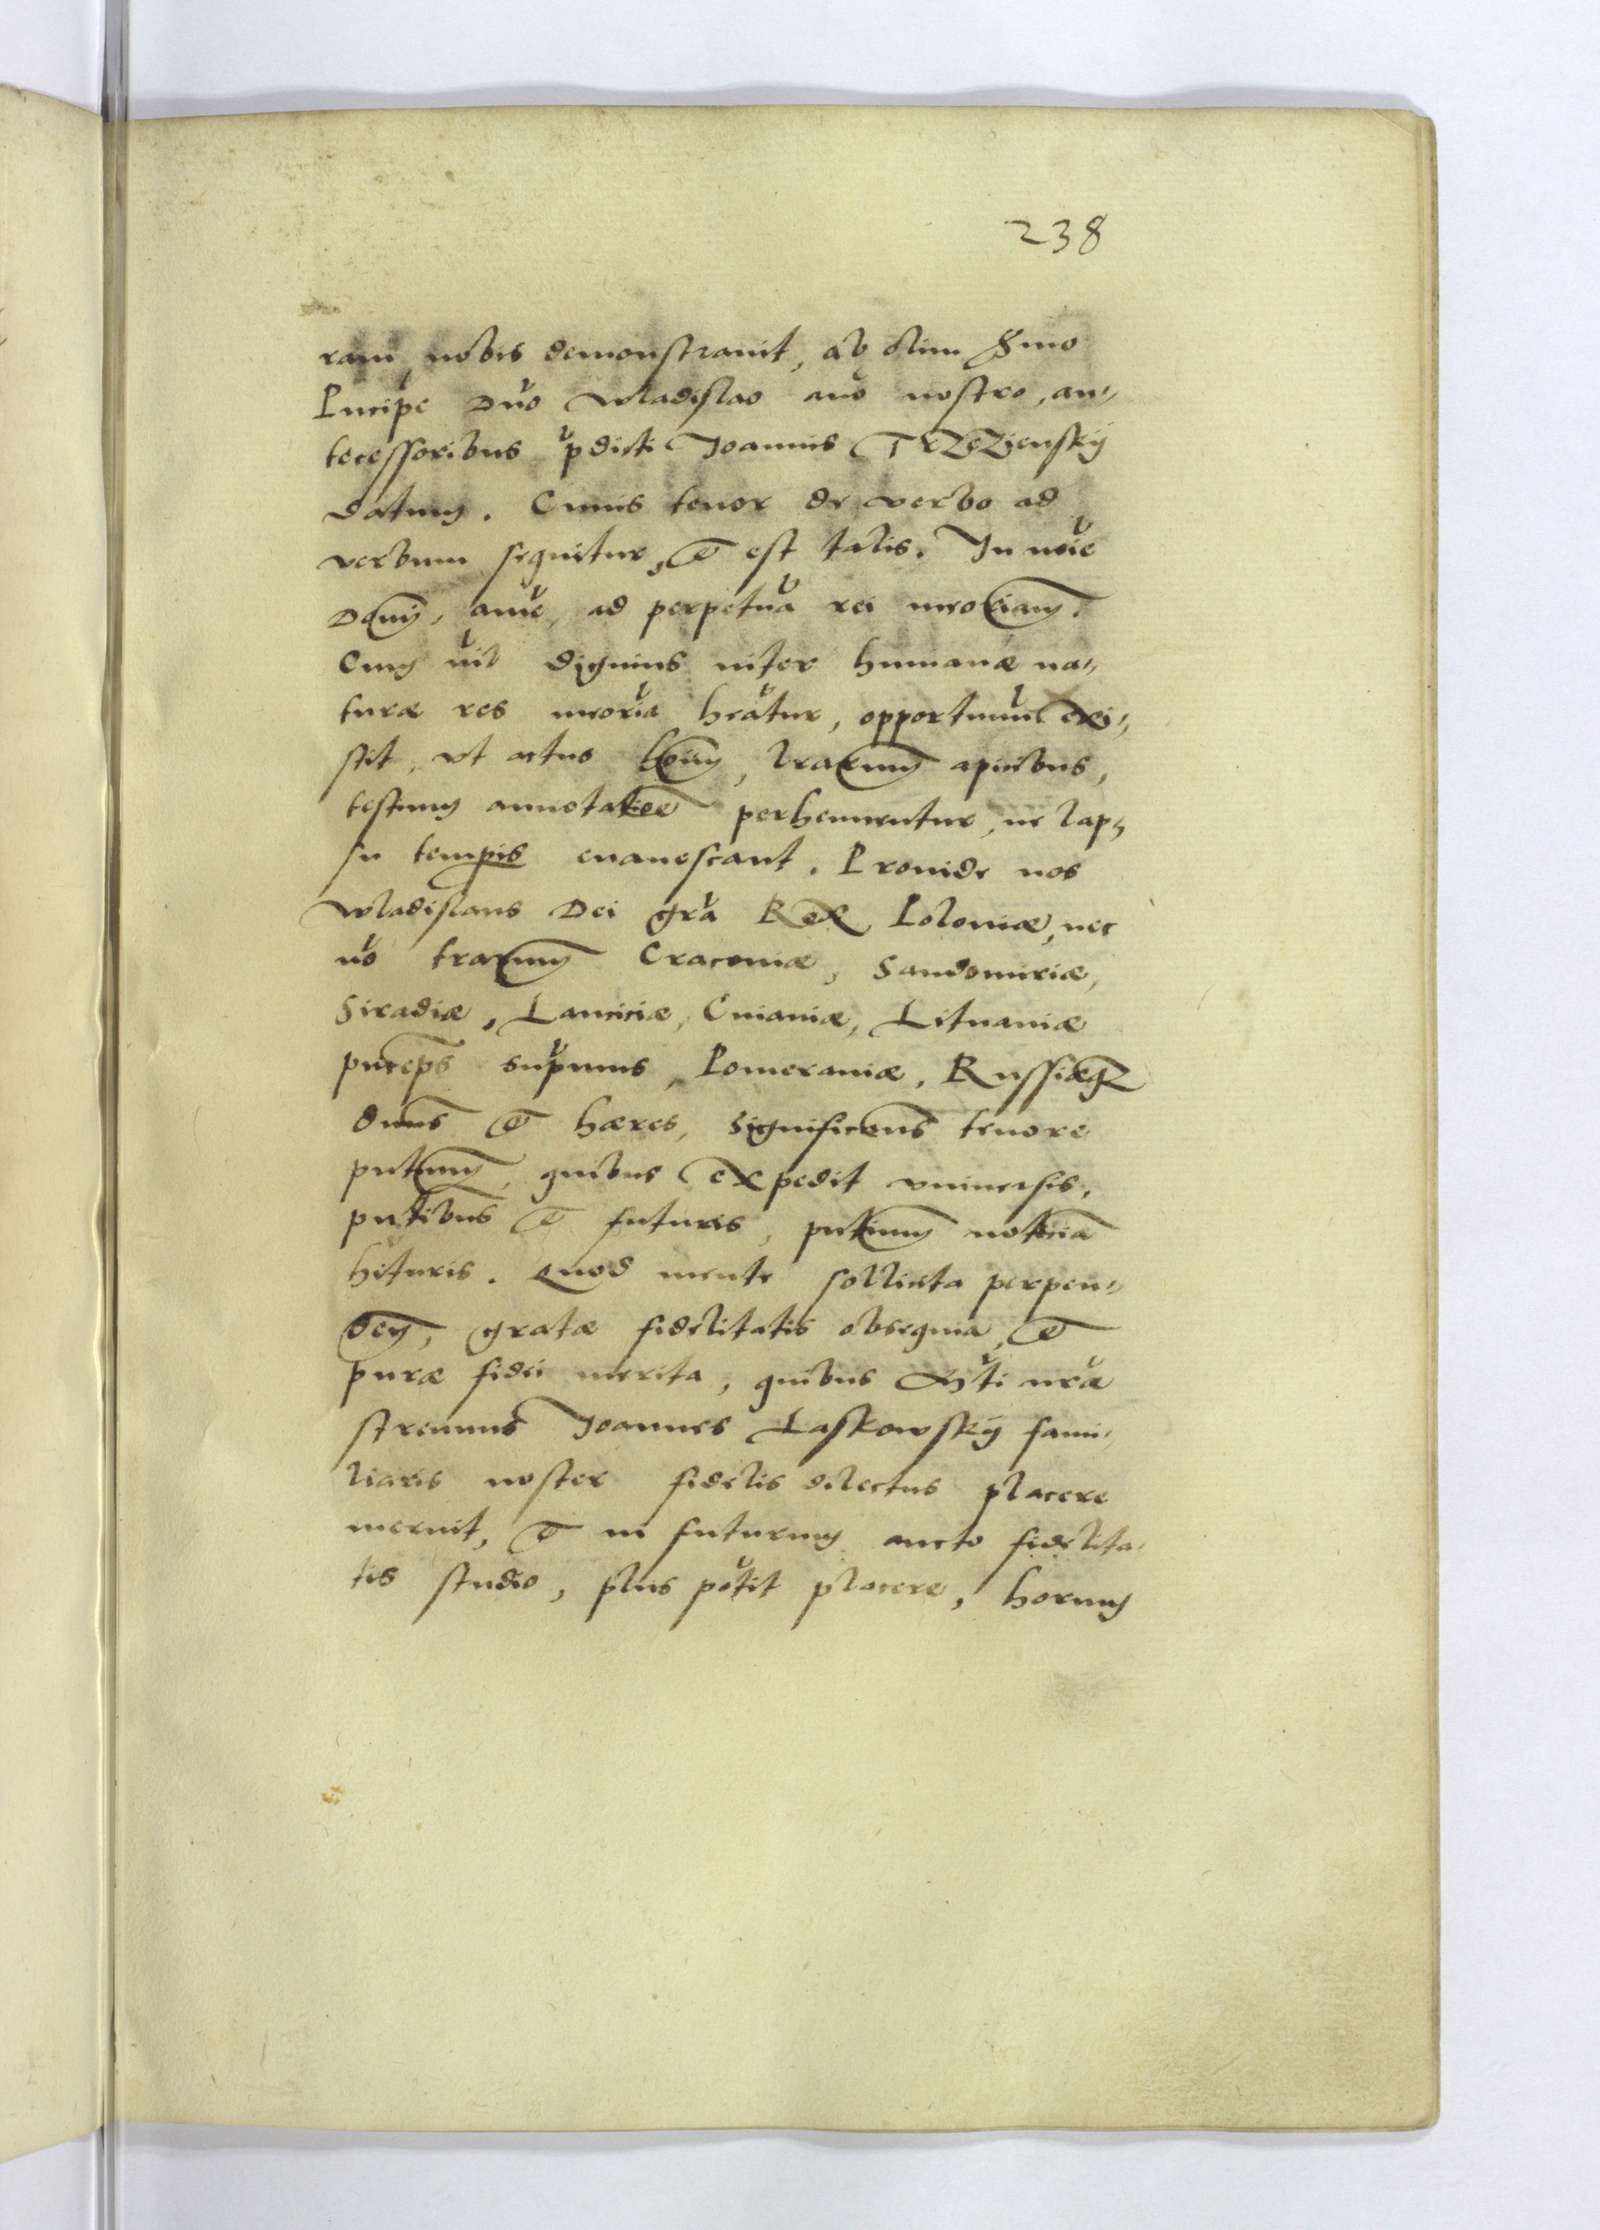 238
ram, nobis demonstrauit, ab olim Smo
Pncipe Dno Wladislao auo nostro, an-
tecessoribus pdicti Joannis TRZEZienskÿ
datum. Cuius tenor de verbo ad
verbum sequitur, et est talis. In noie
Domini, ame, ad perpetua rei meoriam.
Cum nil dignius inter humanæ na-
turæ res meoria heatur, opportunu exi-
stit, vt actus hoim, lrarum apicibus,
testium annotatoe perhennentur, ne lap-
su tempis euanescant. Prouide nos
Wladislaus Dei gra Rex Poloniæ, nec
no trarum Cracouiæ, Sandomiriæ,
Siradiæ, Lanciciæ, Cuiauiæ, Lituaniæ
pnceps supmus, Pomeraniæ, Russiæq
dnus et hæres, significamus tenore
pntium, quibus expedit vniuersis,
pntibus et futuris, pntium noticia
hituris. Quod mente sollicita perpen-
den, gratæ fidelitatis obsequia, et
puræ fidei merita, quibus Mti nræ
strenuus Joannes Laskowskÿ fami-
liaris noster fidelis dilectus placere
meruit, et in futurum aucto fidelita-
tis studio, plus potit placere, horum